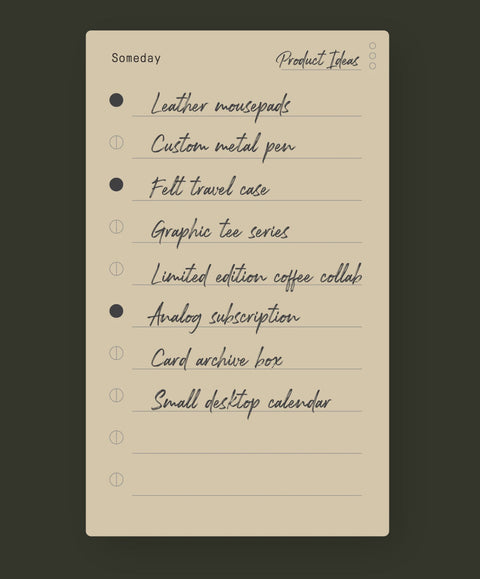 Someday
Product Ideas
Leather mousepads
Custom metal pen
Felt travel case
Graphic tee series
Limited edition coffee collab
Analog subscription
Card archive box
Small desktop calendar